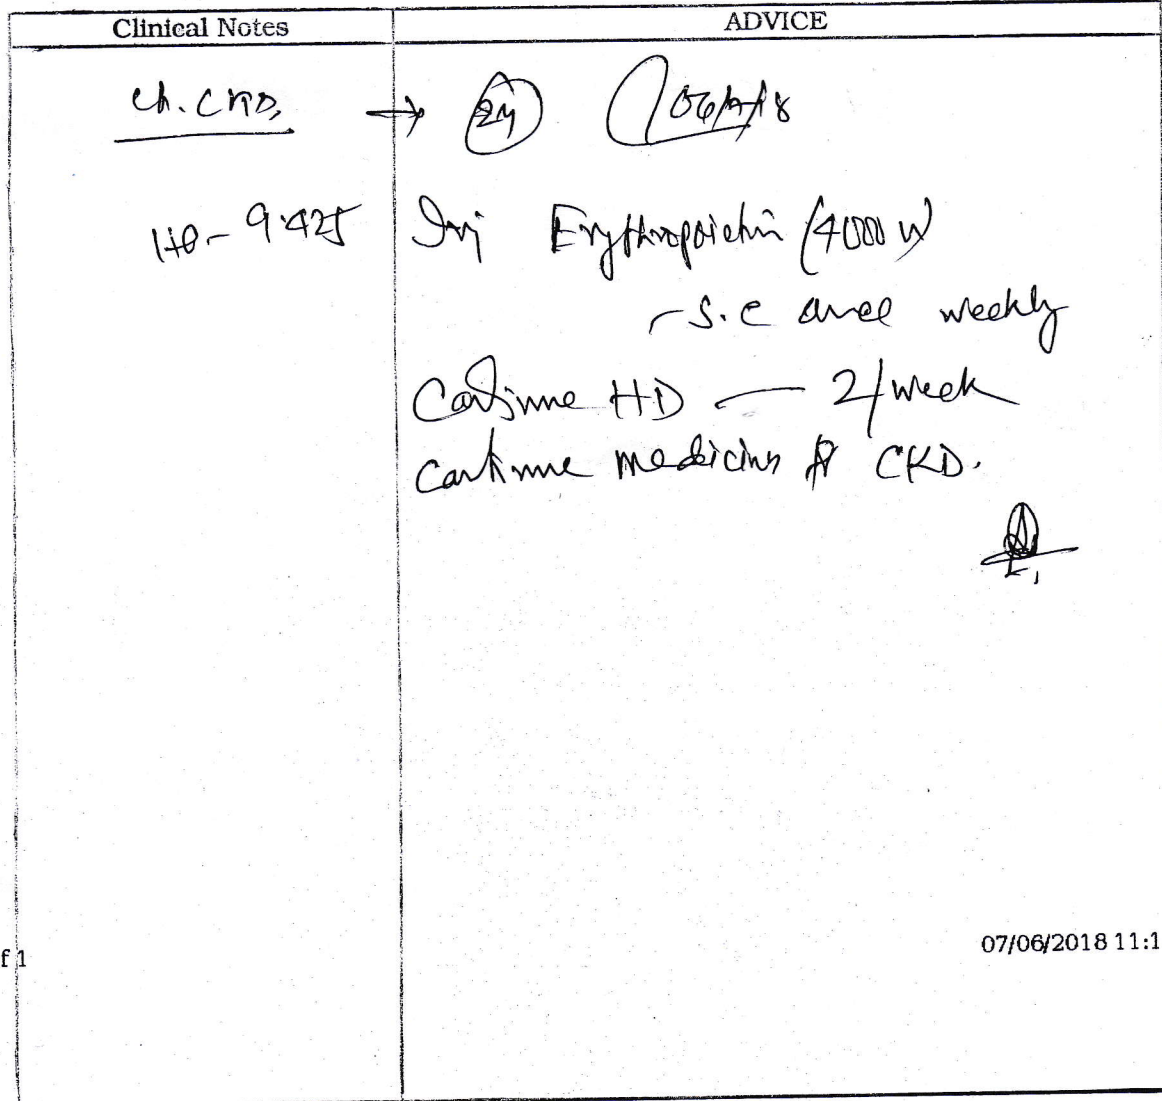 Clinical Notes
ADVICE
Ch. CKD,
Hb - 9.42
Inj Erythropoietin (4000 U)
- S.C once weekly
Continue HD - 2/week
Continue medicines for CKD.
07/06/2018 11:1
f 1